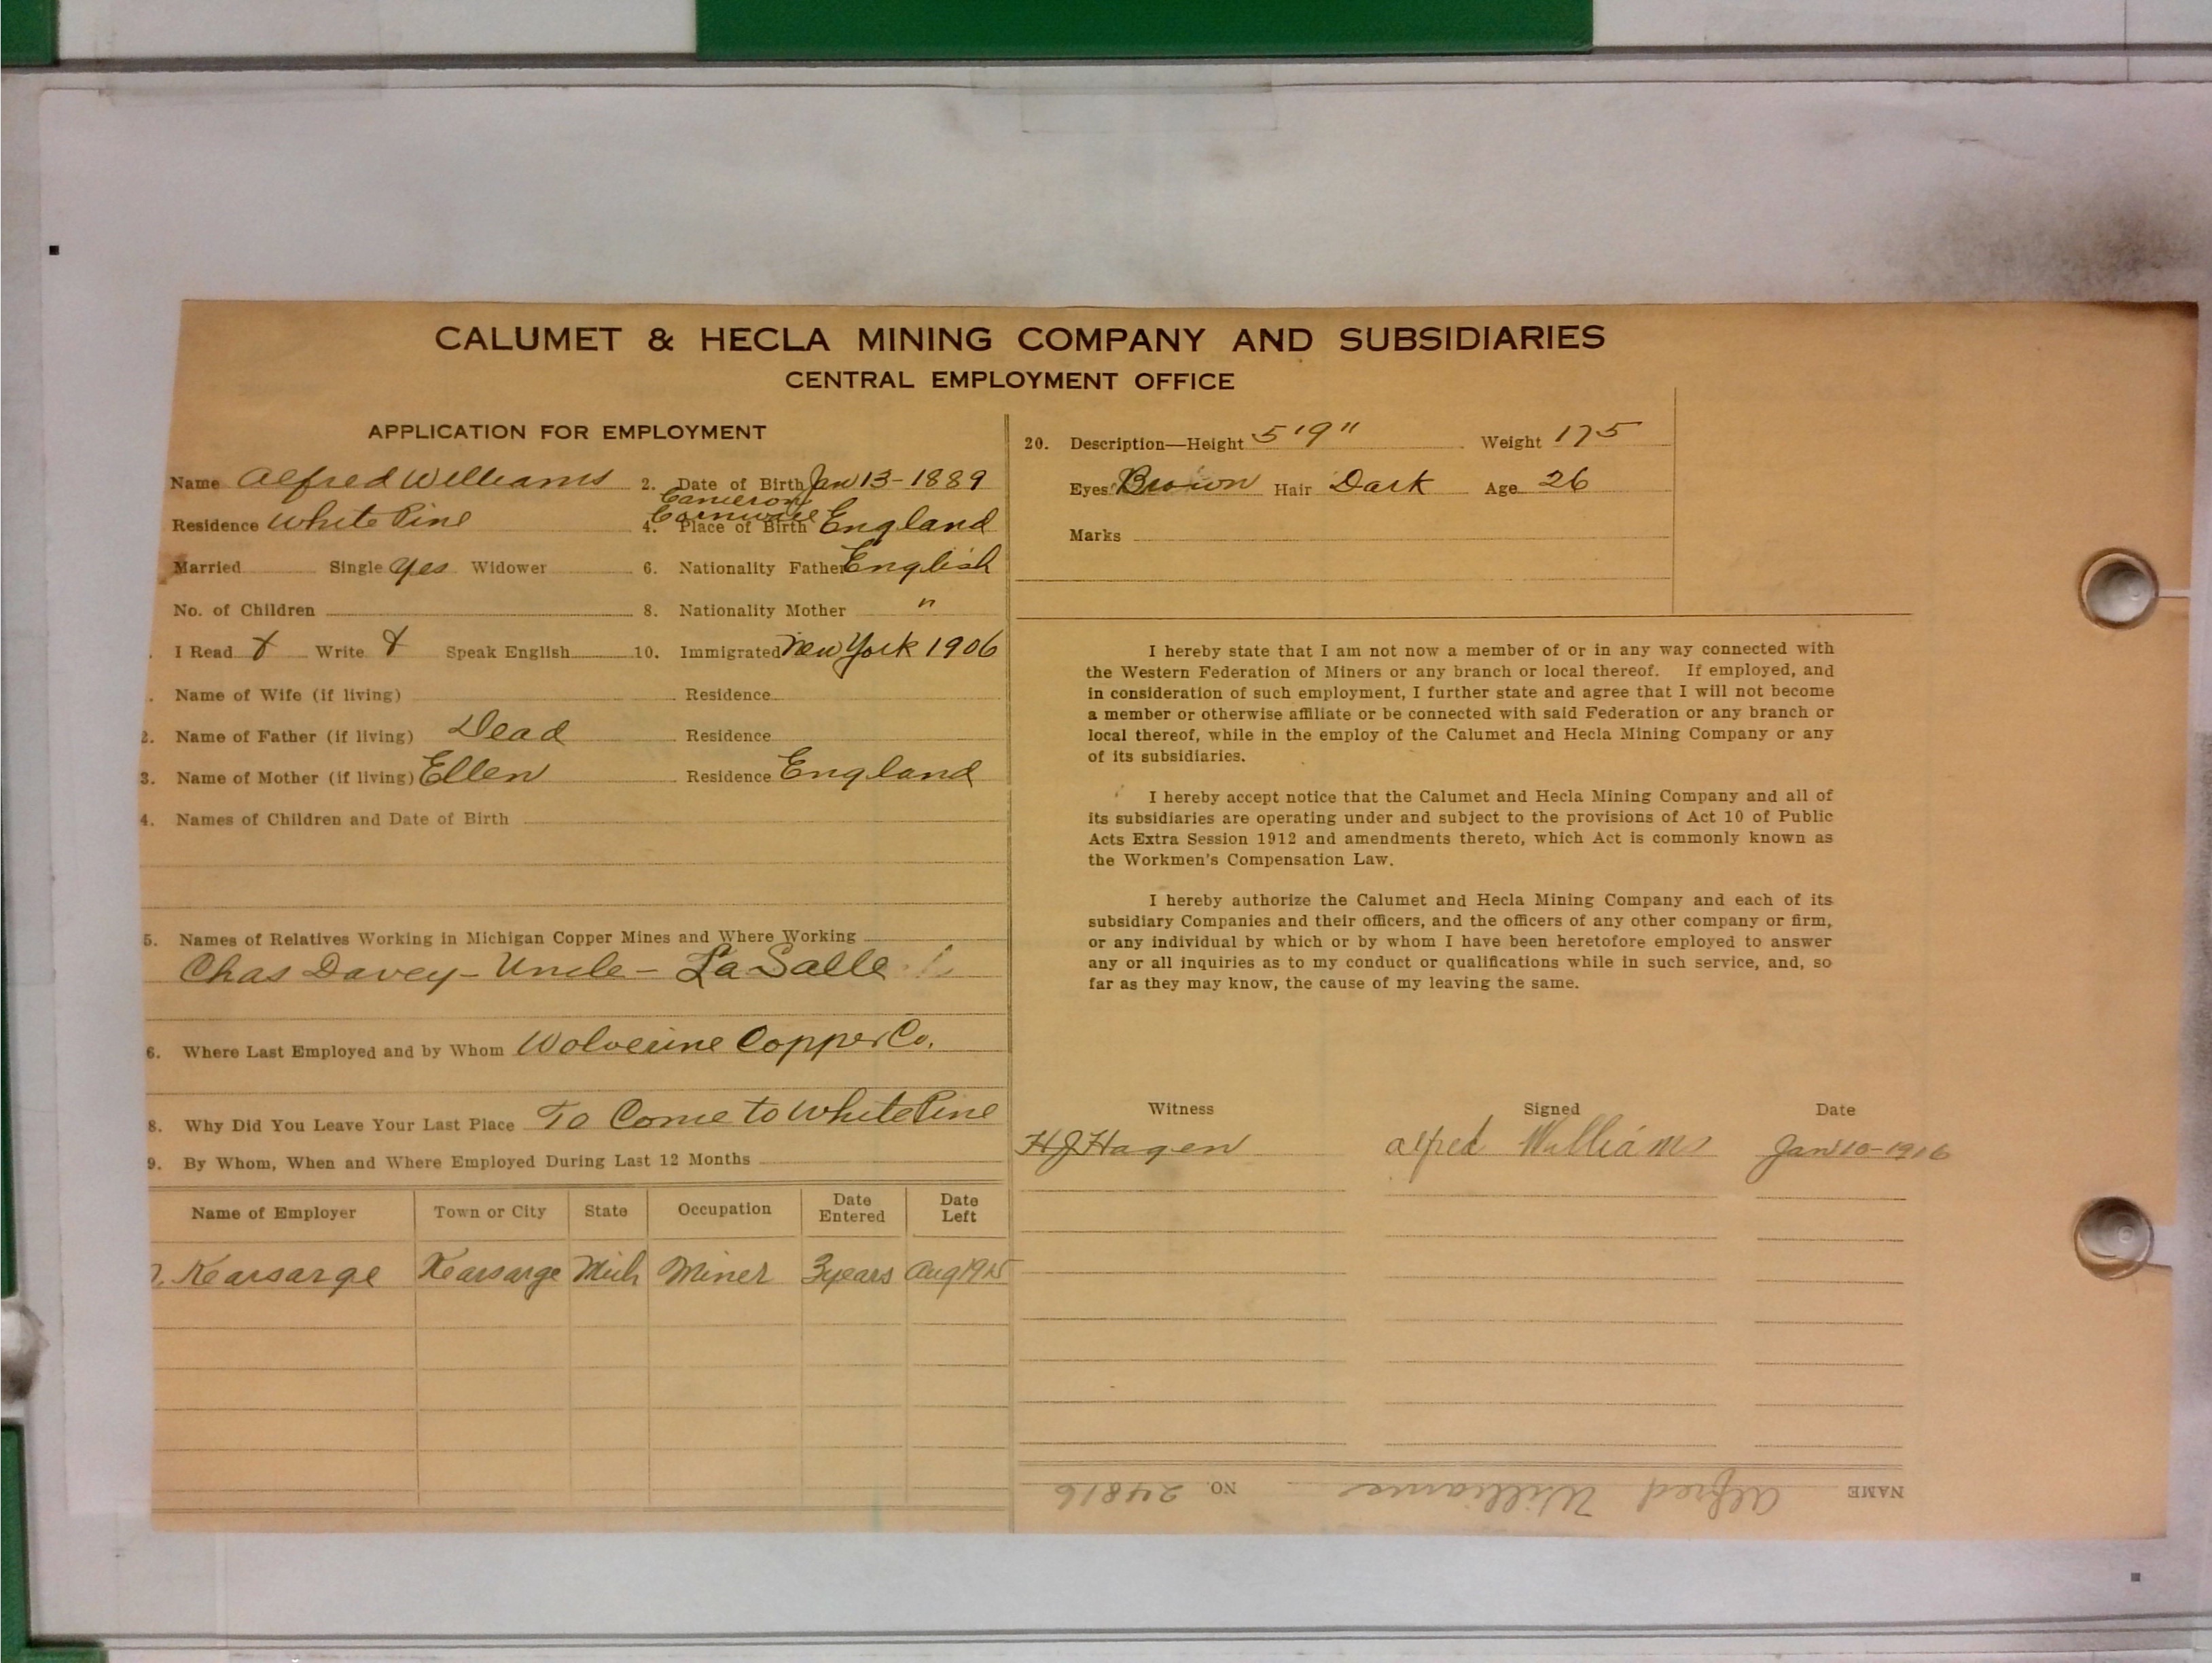 CALUMET & HECLA MINING COMPANY AND SUBSIDIARIES
CENTRAL EMPLOYMENT OFFICE
APPLICATION FOR EMPLOYMENT
Name Alfred Williams 2. Date of Birth Jan 13-1889
Residence White Pine 4. Place of Birth Camerone Cornwall England
Married Single Yes Widower 6. Nationality Father English
No. of Children 8. Nationality Mother "
I Read X Write X Speak English 10. Immigrated New York 1906
Name of Wife (if living) Residence
2. Name of Father (if living) Dead Residence
3. Name of Mother (if living) Ellen Residence England
4. Names of Children and Date of Birth
5. Names of Relatives Working in Michigan Copper Mines and Where Working
Chas Davey - Uncle - La Salle
6. Where Last Employed and by Whom Wolverine Copper Co.
8. Why Did You Leave Your Last Place To Come to White Pine
9. By Whom, When and Where Employed During Last 12 Months
Name of Employer Town or City State Occupation Date Entered Date Left
Kearsarge Kearsarge Mich Miner 3 years Aug 1915
20. Description—Height 5'9" Weight 175
Eyes Brown Hair Dark Age 26
Marks
I hereby state that I am not now a member of or in any way connected with
the Western Federation of Miners or any branch or local thereof. If employed, and
in consideration of such employment, I further state and agree that I will not become
a member or otherwise affiliate or be connected with said Federation or any branch or
local thereof, while in the employ of the Calumet and Hecla Mining Company or any
of its subsidiaries.
I hereby accept notice that the Calumet and Hecla Mining Company and all of
its subsidiaries are operating under and subject to the provisions of Act 10 of Public
Acts Extra Session 1912 and amendments thereto, which Act is commonly known as
the Workmen's Compensation Law.
I hereby authorize the Calumet and Hecla Mining Company and each of its
subsidiary Companies and their officers, and the officers of any other company or firm,
or any individual by which or by whom I have been heretofore employed to answer
any or all inquiries as to my conduct or qualifications while in such service, and, so
far as they may know, the cause of my leaving the same.
Witness Signed Date
HJ Hagen Alfred Williams Jan 10-1916
NAME Alfred Williams NO. 24816